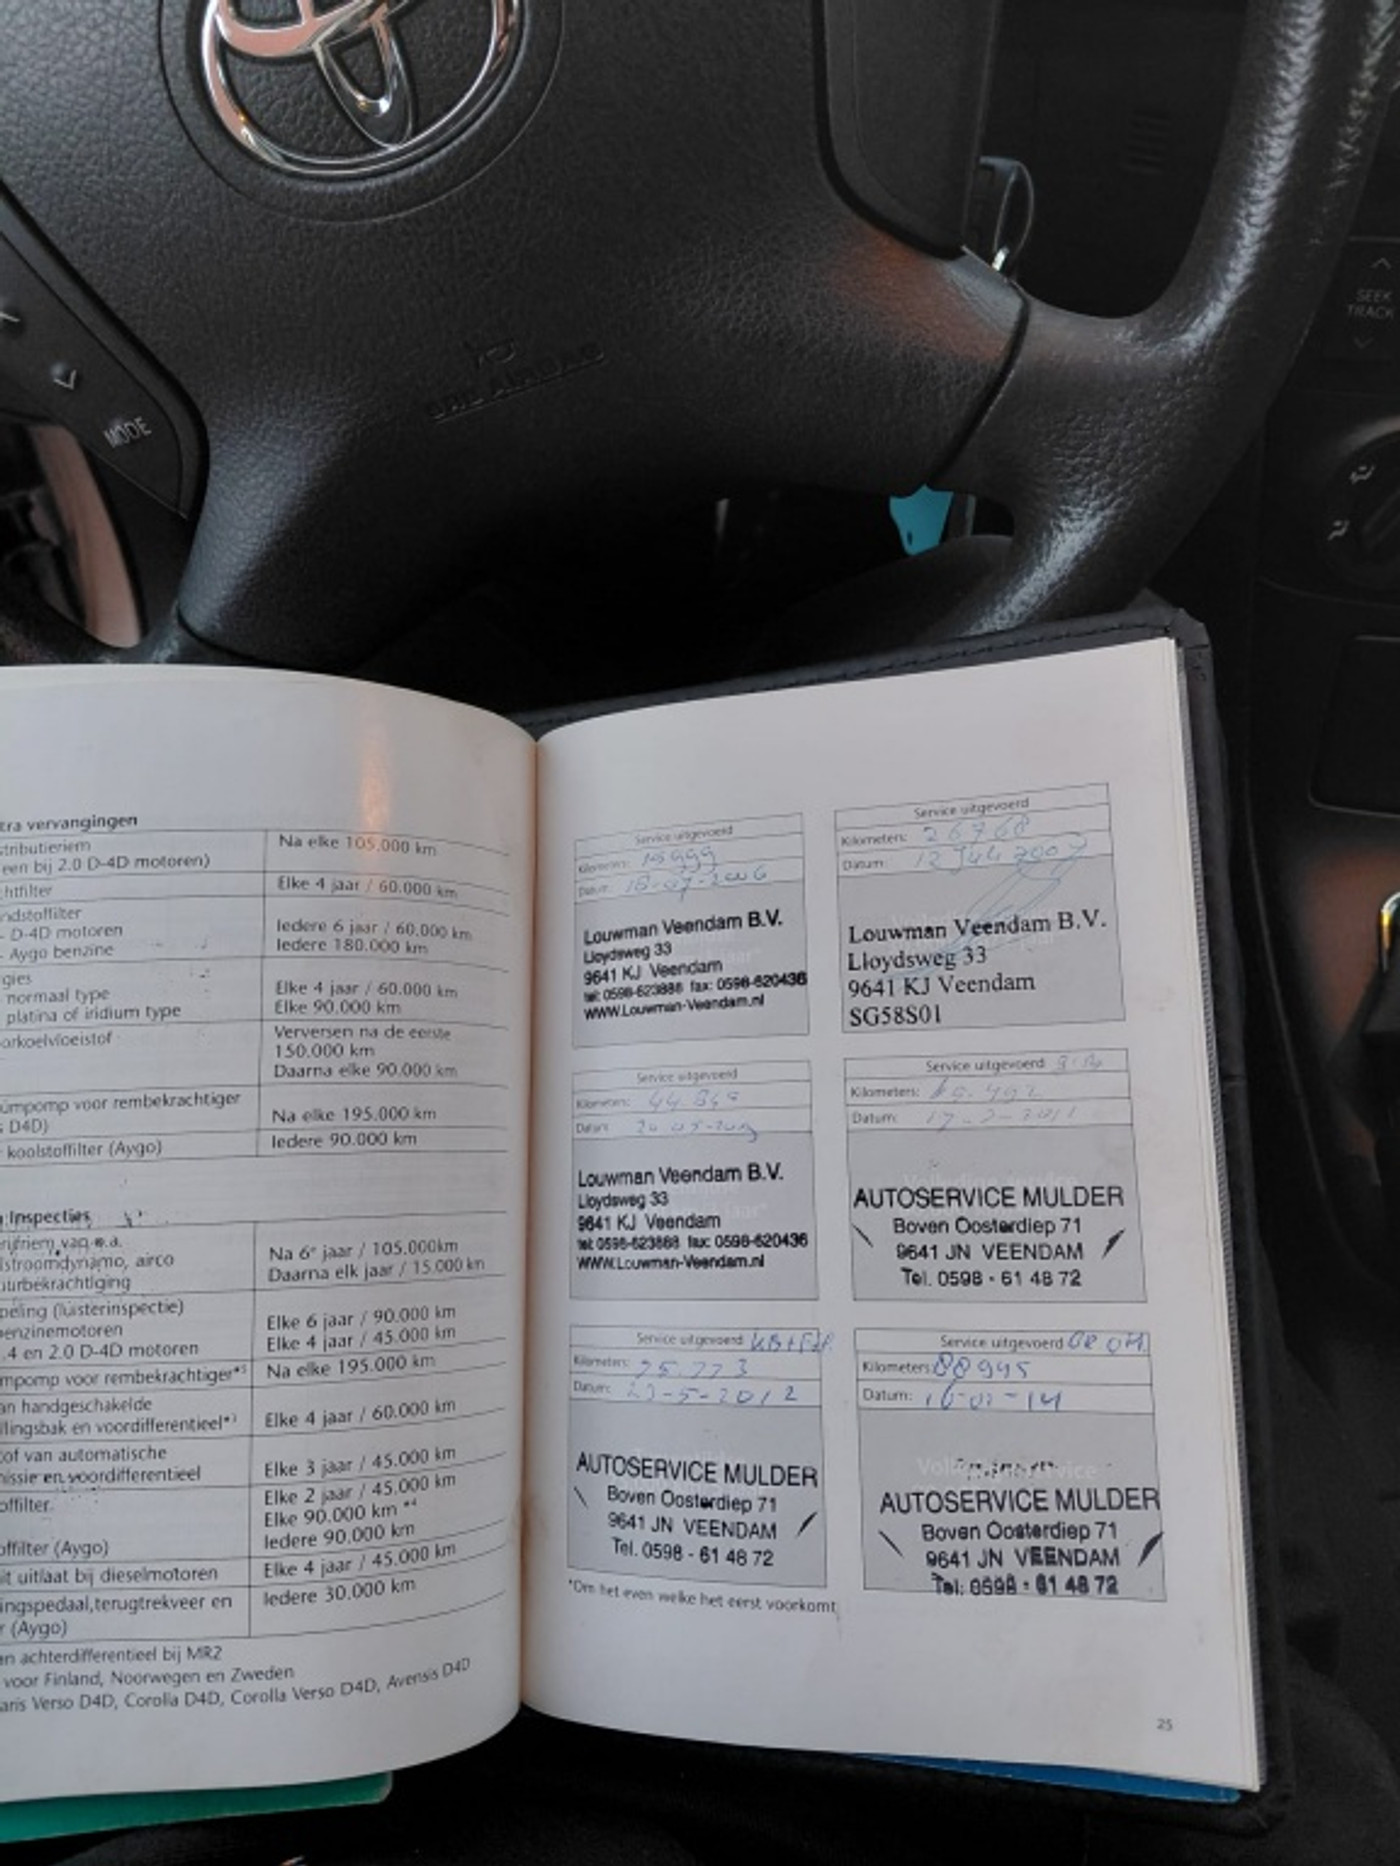 MODE
SRS AIRBAG
SEEK
TRACK
tra vervangingen
stributieriem
een bij 2.0 D-4D motoren)
Na elke 105.000 km
chtfilter
Elke 4 jaar / 60.000 km
ndstoffilter
- D-4D motoren
Iedere 6 jaar / 60.000 km
- Aygo benzine
Iedere 180.000 km
gies
normaal type
Elke 4 jaar / 60.000 km
platina of iridium type
Elke 90.000 km
orkoelvloeistof
Verversen na de eerste
150.000 km
Daarna elke 90.000 km
ümpomp voor rembekrachtiger
s D4D)
Na elke 195.000 km
koolstoffilter (Aygo)
Iedere 90.000 km
Inspecties
rijfriem van o.a.
lstroomdynamo, airco
uurbekrachtiging
Na 6e jaar / 105.000km
Daarna elk jaar / 15.000 km
peling (luisterinspectie)
benzinemotoren
Elke 6 jaar / 90.000 km
.4 en 2.0 D-4D motoren
Elke 4 jaar / 45.000 km
mpomp voor rembekrachtiger*5
Na elke 195.000 km
an handgeschakelde
llingsbak en voordifferentieel*)
Elke 4 jaar / 60.000 km
tof van automatische
missie en voordifferentieel
Elke 3 jaar / 45.000 km
offilter
Elke 2 jaar / 45.000 km
Elke 90.000 km *4
offilter (Aygo)
Iedere 90.000 km
it uitlaat bij dieselmotoren
Elke 4 jaar / 45.000 km
ingspedaal,terugtrekveer en
r (Aygo)
Iedere 30.000 km
an achterdifferentieel bij MR2
voor Finland, Noorwegen en Zweden
aris Verso D4D, Corolla D4D, Corolla Verso D4D, Avensis D4D
Service uitgevoerd
Kilometers: 15999
Datum: 18-07-2006
Louwman Veendam B.V.
Lloydsweg 33
9641 KJ Veendam
tel: 0598-623888 fax: 0598-620436
WWW.Louwman-Veendam.nl
Service uitgevoerd
Kilometers: 26768
Datum: 12 Juli 2007
Louwman Veendam B.V.
Lloydsweg 33
9641 KJ Veendam
SG58S01
Service uitgevoerd
Kilometers: 44.849
Datum:
Louwman Veendam B.V.
Lloydsweg 33
9641 KJ Veendam
tel: 0598-623888 fax: 0598-620436
WWW.Louwman-Veendam.nl
Service uitgevoerd
Kilometers:
Datum:
AUTOSERVICE MULDER
Boven Oosterdiep 71
9641 JN VEENDAM
Tel. 0598 - 61 48 72
Service uitgevoerd
Kilometers: 75.773
Datum: 23-5-2012
AUTOSERVICE MULDER
Boven Oosterdiep 71
9641 JN VEENDAM
Tel. 0598 - 61 48 72
Service uitgevoerd
Kilometers: 88995
Datum: 16-01-14
AUTOSERVICE MULDER
Boven Oosterdiep 71
9641 JN VEENDAM
Tel: 0598 - 61 48 72
*Om het even welke het eerst voorkomt
25